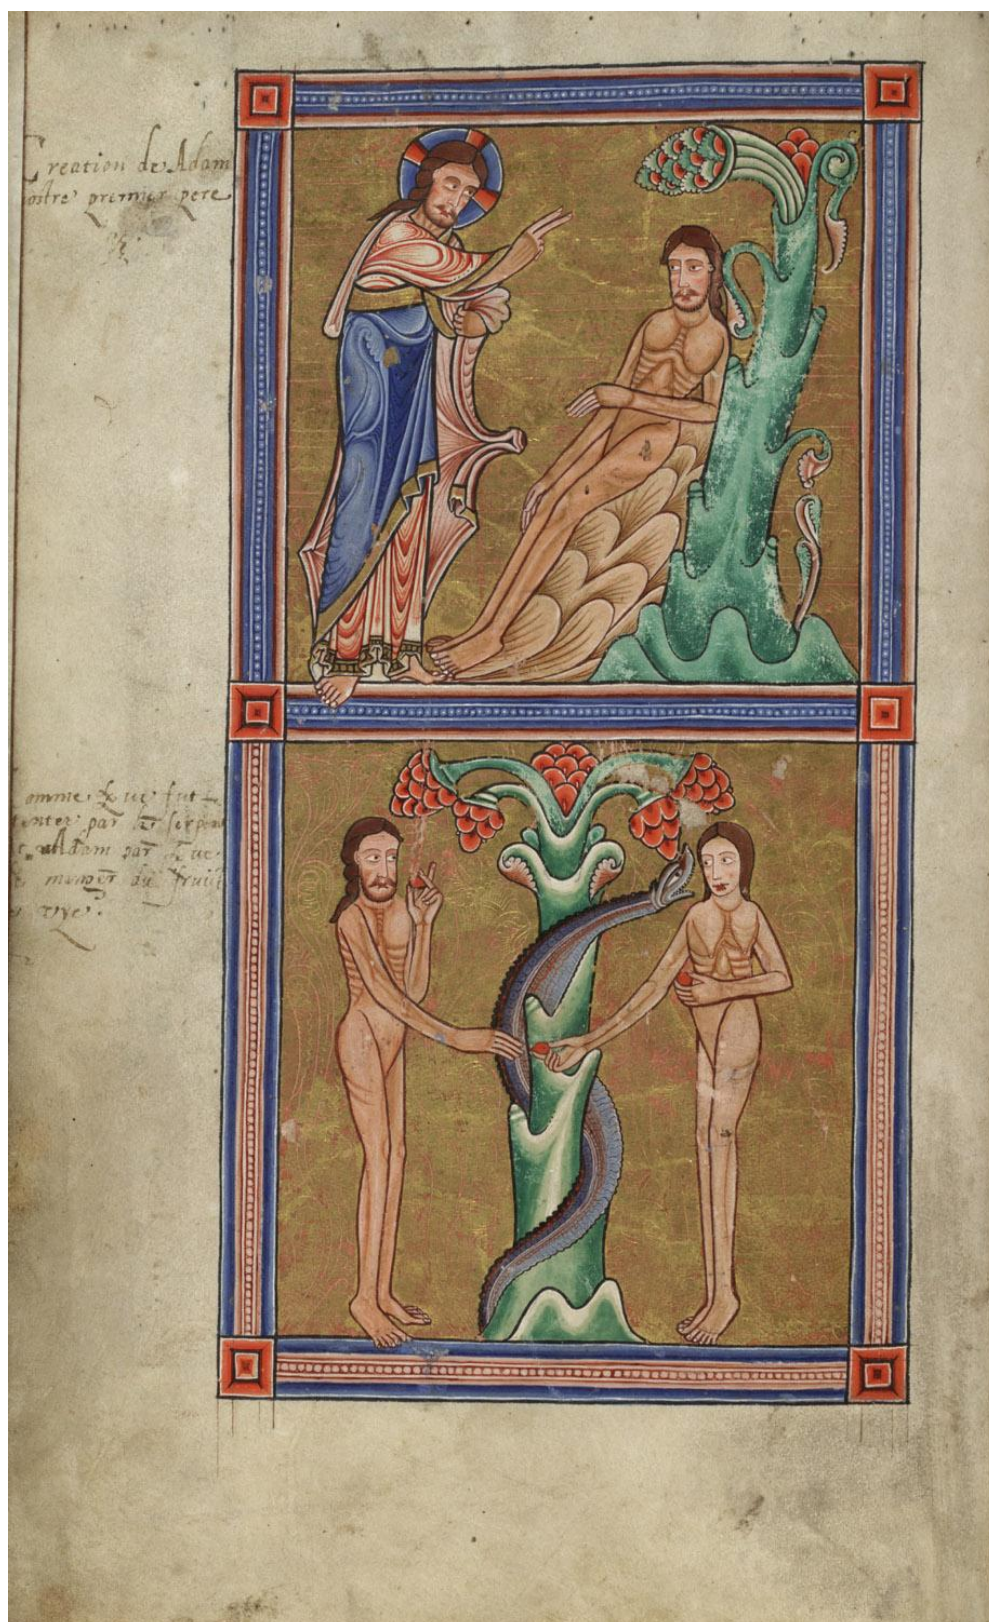 Creation de Adam
ostre premier pere
omme Eue fut
tenter par le serpent
Adam par Eue
manger du fruit